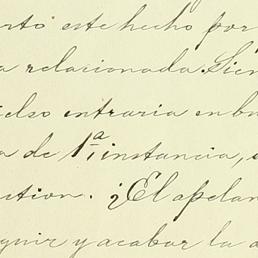 rtó este hecho por
a relacionada. Sien
elso entraria en bu
a de 1ª instancia, s
ction. ¿El apelan
guir y acabar la a